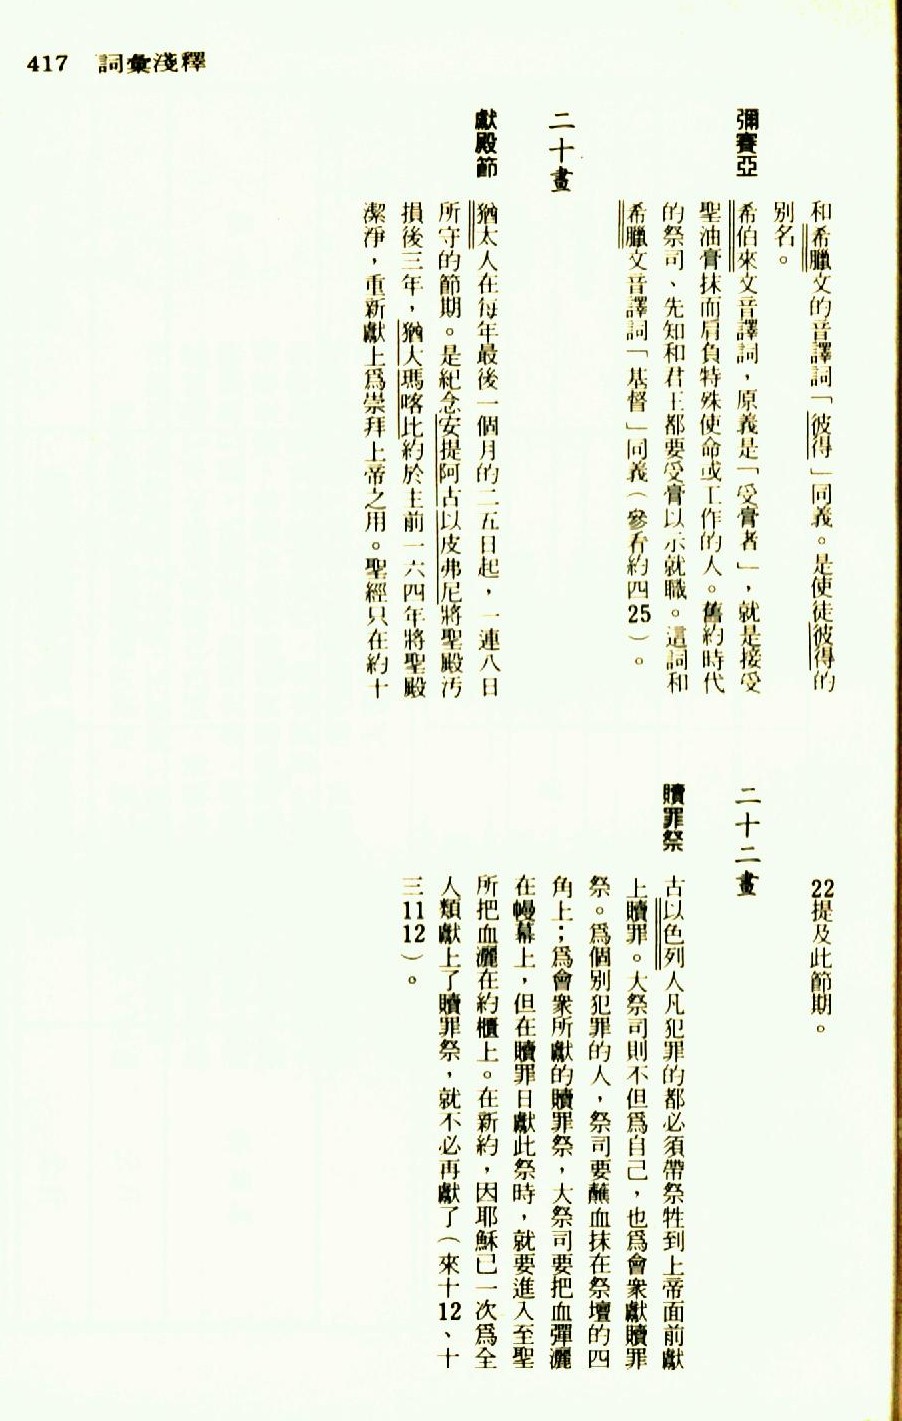 417 詞彙淺釋
和希臘文的音譯詞「彼得」同義。是使徒彼得的
別名。
彌賽亞 希伯來文音譯詞，原義是「受膏者」，就是接受
聖油膏抹而肩負特殊使命或工作的人。舊約時代
的祭司、先知和君王都要受膏以示就職。這詞和
希臘文音譯詞「基督」同義（參看約四25）。
二十畫
獻殿節 猶太人在每年最後一個月的二五日起，一連八日
所守的節期。是紀念安提阿古以皮弗尼將聖殿污
損後三年，猶大瑪喀比約於主前一六四年將聖殿
潔淨，重新獻上爲崇拜上帝之用。聖經只在約十
22提及此節期。
二十二畫
贖罪祭 古以色列人凡犯罪的都必須帶祭牲到上帝面前獻
上贖罪。大祭司則不但爲自己，也爲會衆獻贖罪
祭。爲個別犯罪的人，祭司要蘸血抹在祭壇的四
角上；爲會衆所獻的贖罪祭，大祭司要把血彈灑
在幔幕上，但在贖罪日獻此祭時，就要進入至聖
所把血灑在約櫃上。在新約，因耶穌已一次爲全
人類獻上了贖罪祭，就不必再獻了（來十12、十
三11 12）。